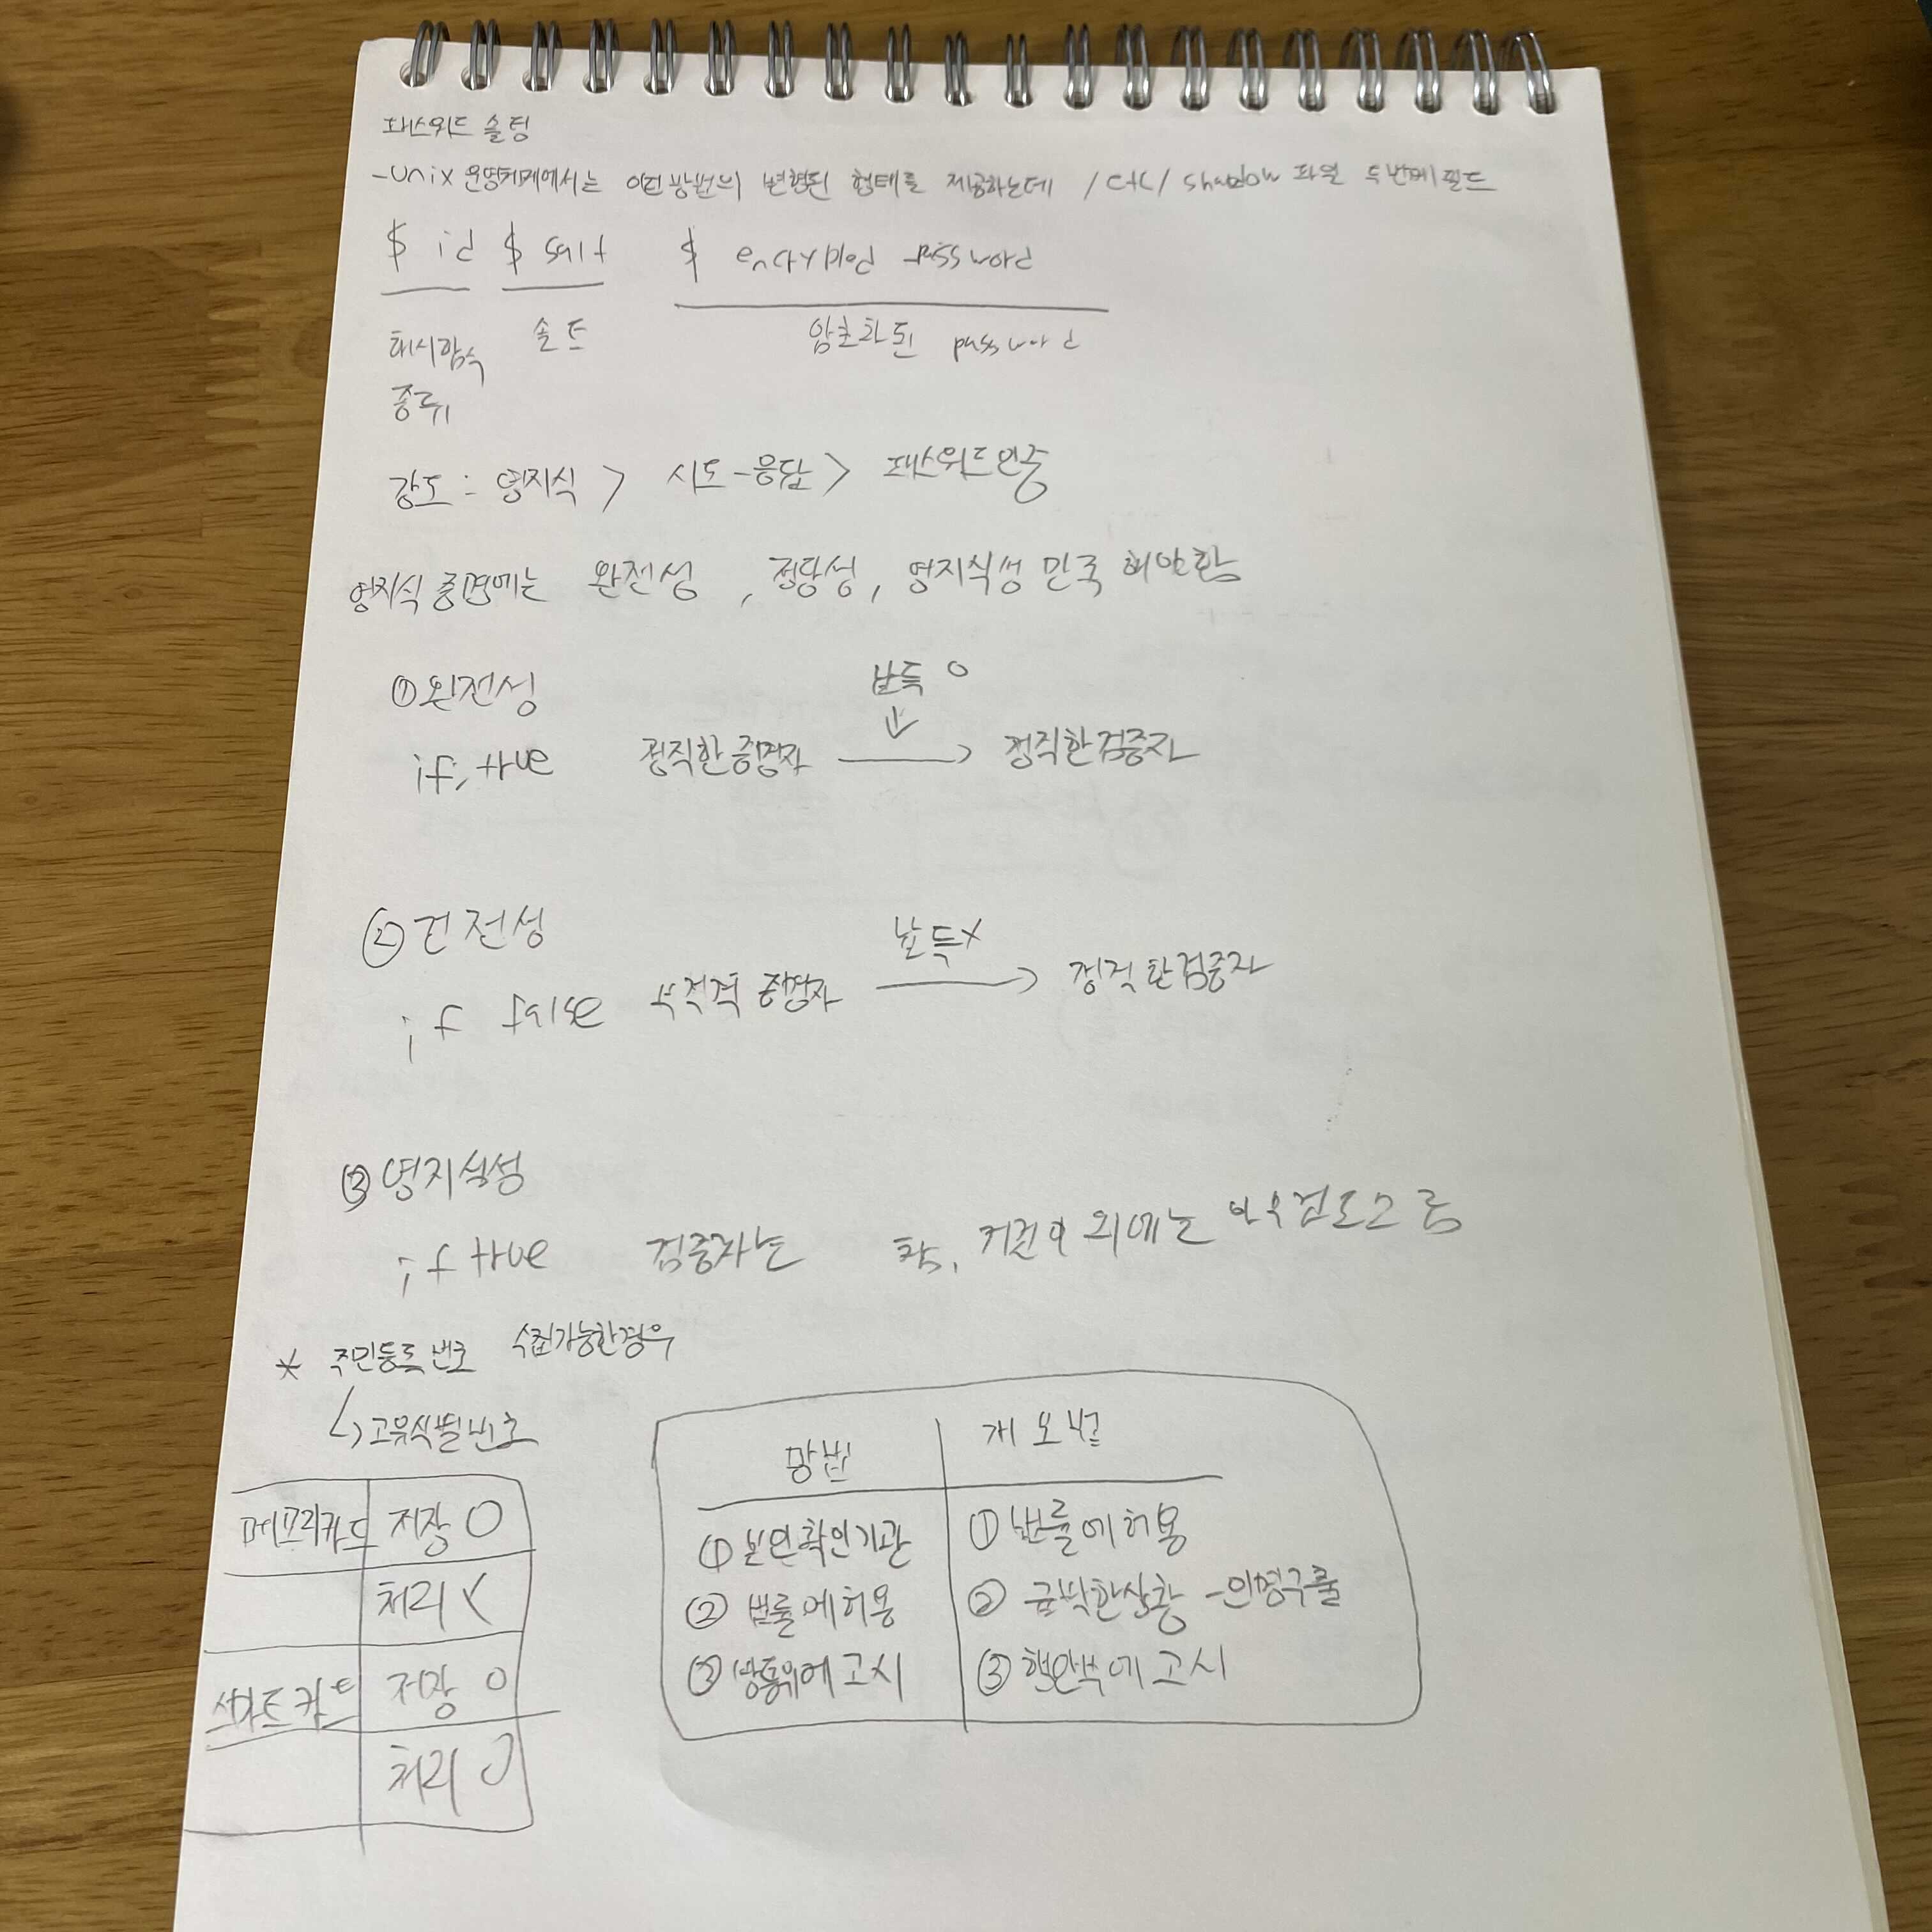 패스워드 솔팅
-unix 운영체제에서는 이런 방법의 변형된 형태를 제공하는데 /etc/ shadow 파일 두번째 필드
$ id $ salt $ encrypted password
해시함수 솔트 암호화된 password
종류
강도 : 영지식 > 시도-응답 > 패스워드인증
영지식 증명에는 완전성 , 정당성, 영지식성 만족 해야함
① 완전성
납득 O
if, true 정직한 증명자 → 정직한 검증자
② 건전성
납득X
if false 부정직 증명자 → 정직한 검증자
③ 영지식성
if true 검증자는 참, 거짓 이외에는 아무것도 모름
* 주민등록번호 수집가능한경우
↳ 고유식별번호
망법 개보법
① 본인확인기관 ① 법률에 허용
② 법률에 허용 ② 급박한상황 -인명구출
③ 방통위에 고시 ③ 행안부에 고시
메모리카드 저장 O
처리 X
스마트카드 저장 O
처리 O